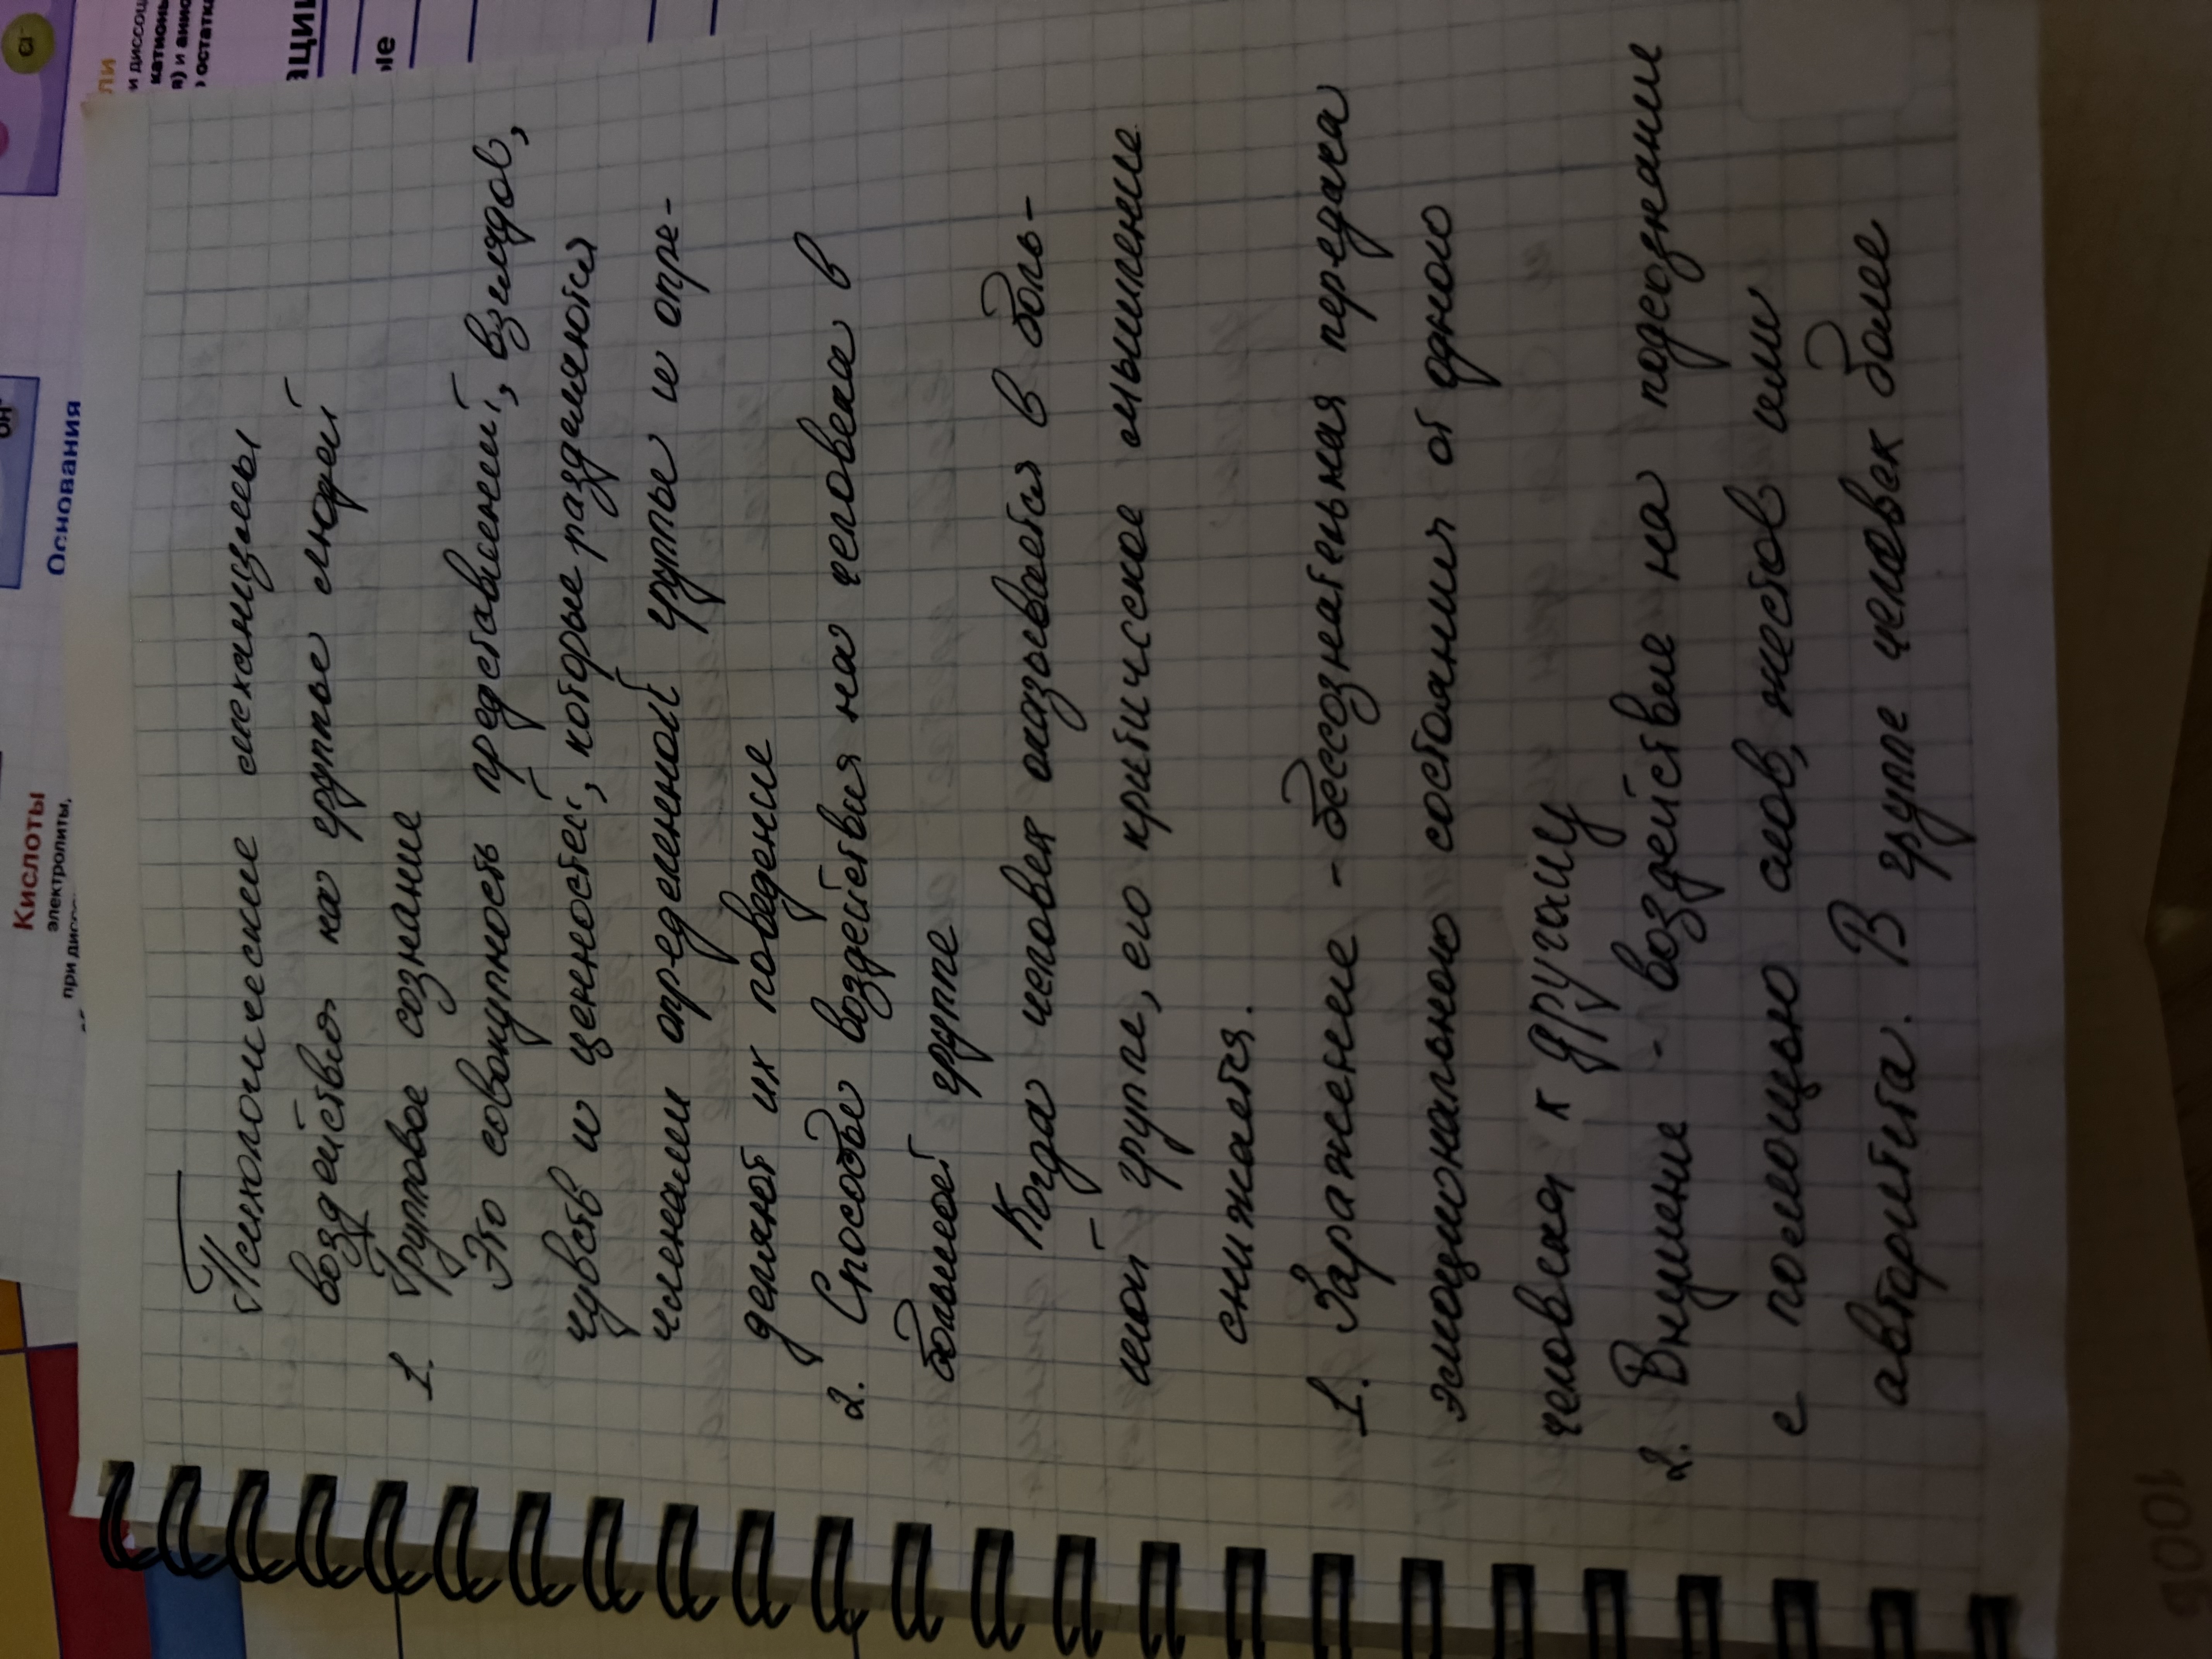 Психологические механизмы
воздействия на группы людей
1. Групповое сознание
Это совокупность представлений, взглядов,
чувств и ценностей, которые разделяются
членами определенной группы и опре-
деляют их поведение
2. Способы воздействия на человека в
большой группе
Когда человек оказывается в боль-
шой группе, его критическое мышление
снижается.
1. Заражение - бессознательная передача
эмоционального состояния от одного
человека к другому
2. Внушение - воздействие на подсознание
с помощью слов, жестов или
авторитета. В группе человек более
Кислоты
электролиты,
при дисс
Основания
OH⁻
ли
и диссоц
катионы
я) и анио
остатка
Cl⁻
аци
ые
100Б